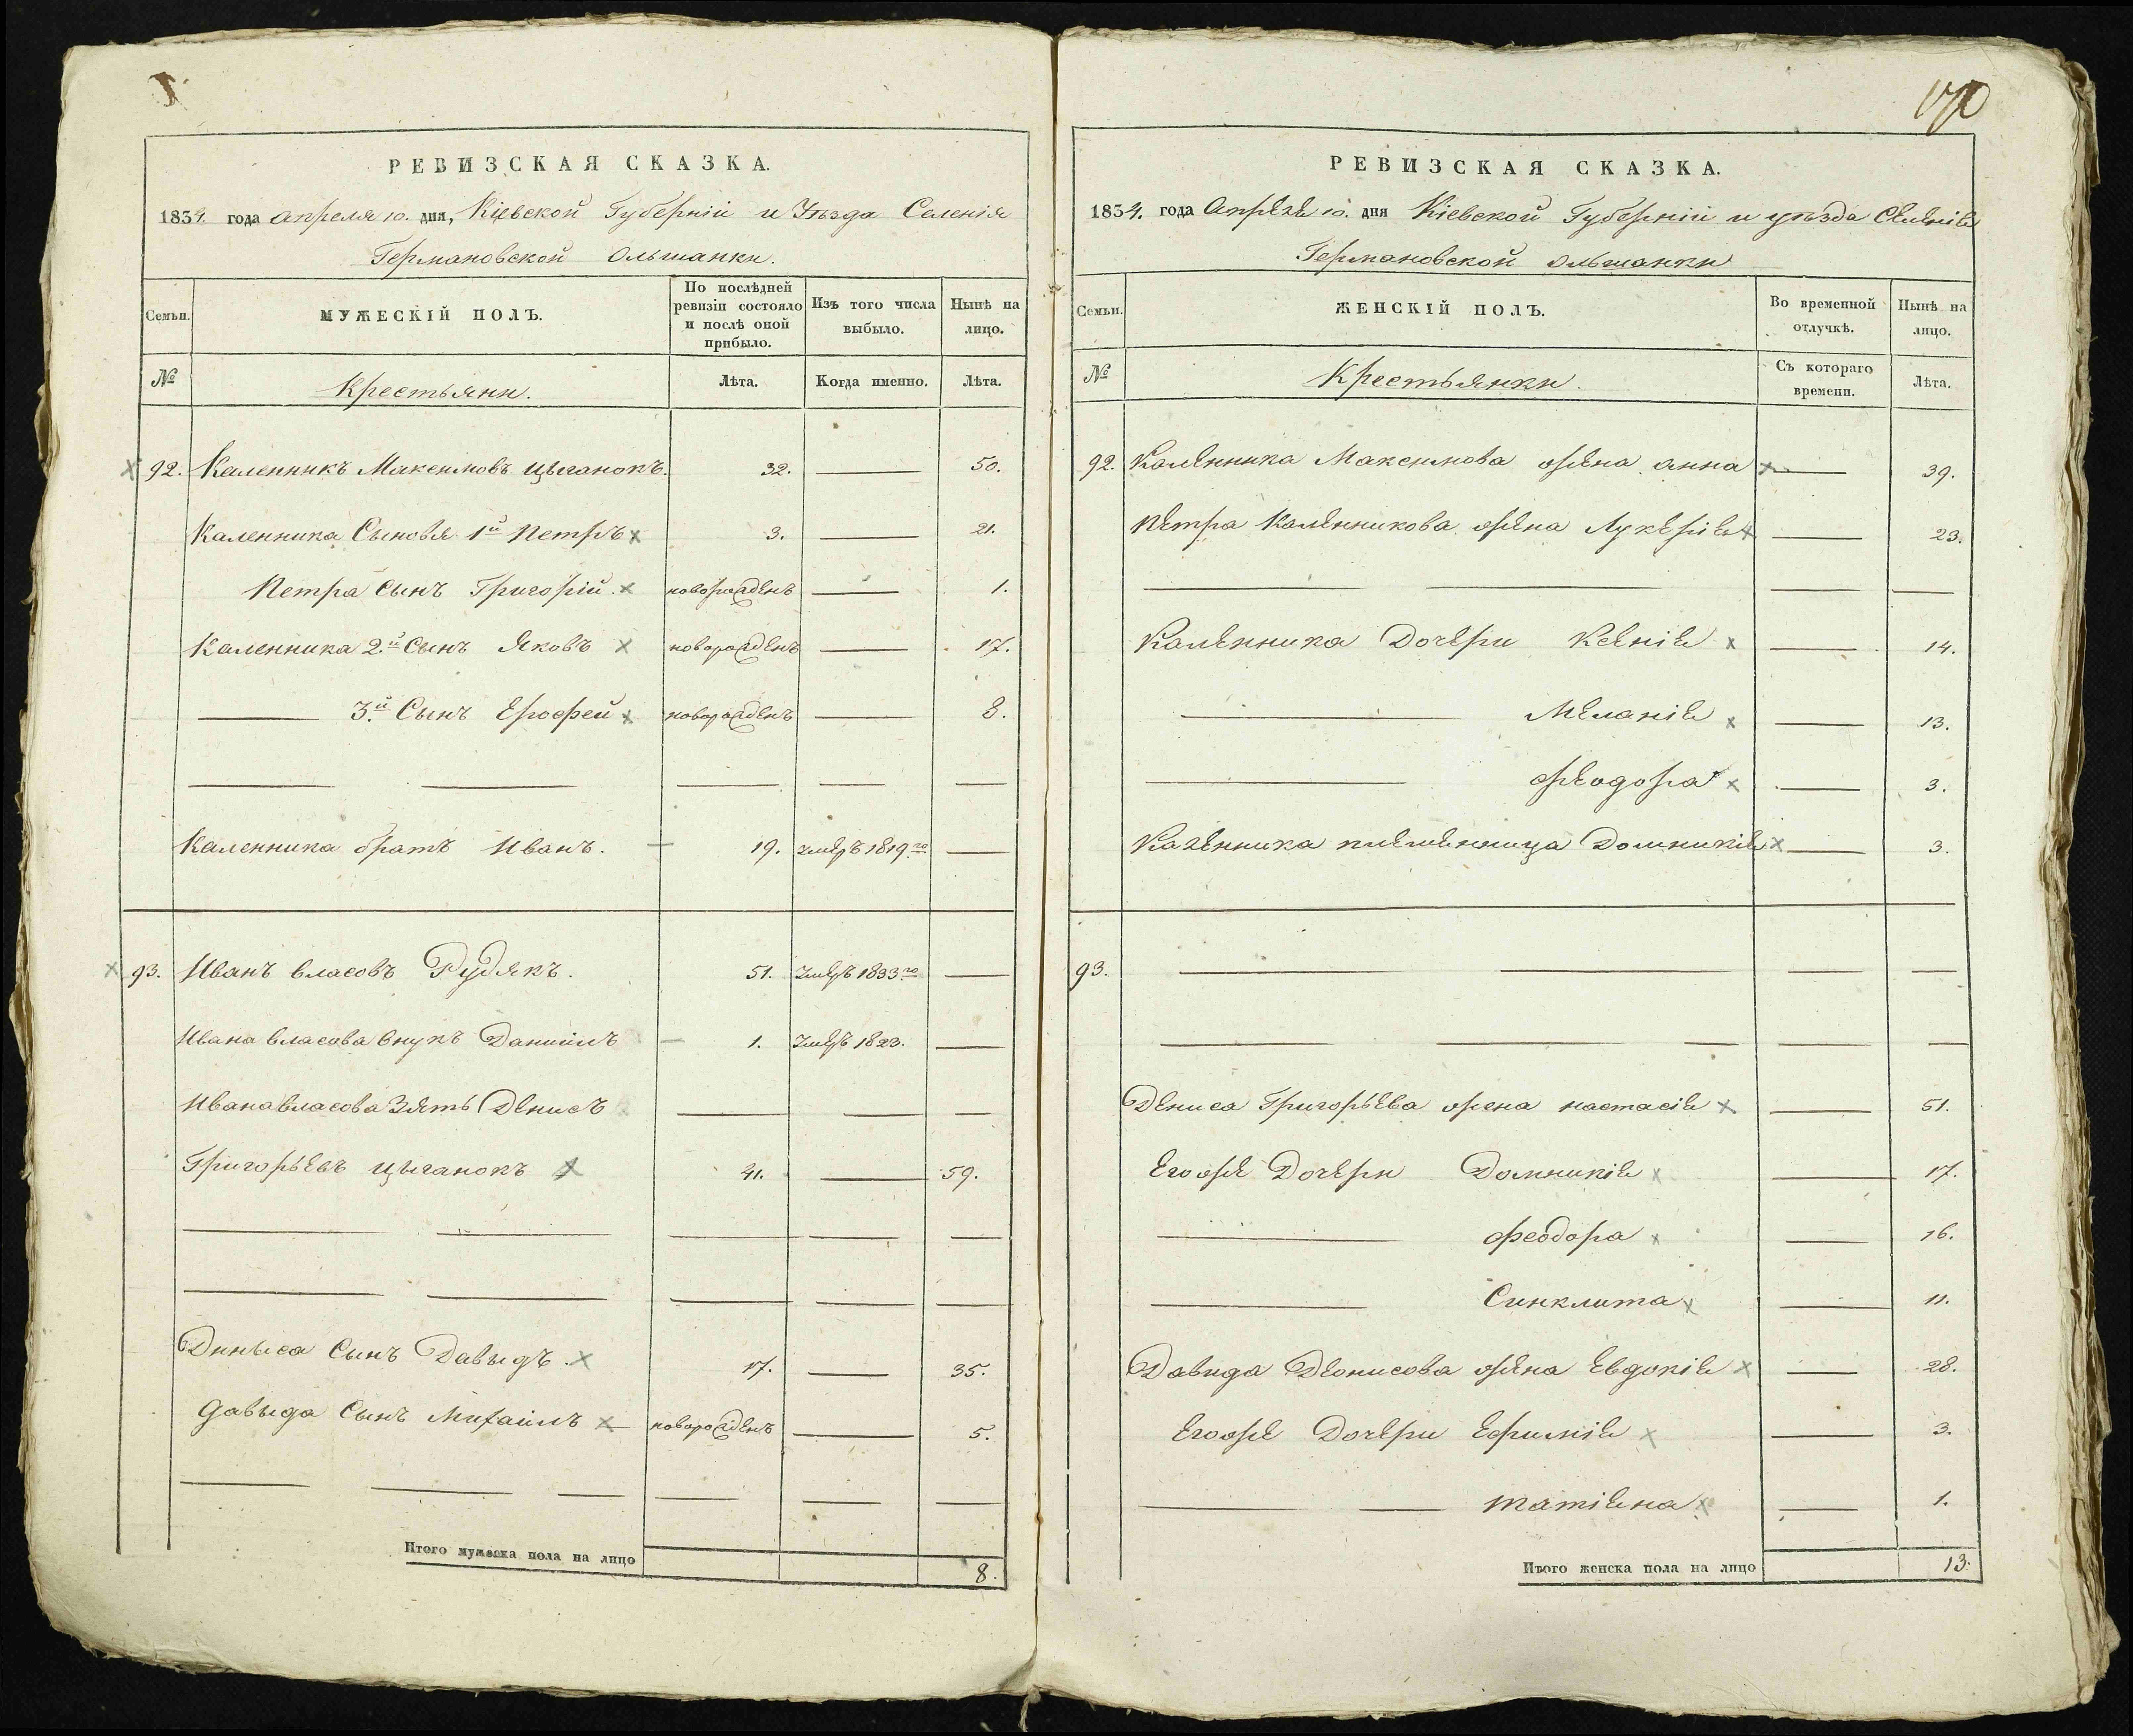 РЕВИЗСКАЯ СКАЗКА.
1834. года Апреля 10. дня, Кіевской Губерніи и Уѣзда Селенія
Германовской Ольшанки.
Семьи.
МУЖЕСКІЙ ПОЛЪ.
По послѣдней ревизіи состояло и послѣ оной прибыло.
Изъ того числа выбыло.
Нынѣ на лицо.
№ Крестьяни. Лѣта. Когда именно. Лѣта.
92. Каленникъ Максимовъ Цыганокъ. 32. — 50.
Каленника Сыновя 1й Петръ 3. — 21.
Петра Сынъ Григорій новорожденъ — 1.
Каленника 2й Сынъ Яковъ новорожденъ — 17.
— 3й Сынъ Ерофей новорожденъ — 8.
Каленника братъ Иванъ. 19. умеръ 1819го —
93. Иванъ Власовъ Рудякъ. 51. Умеръ 1833го —
Ивана Власова Внукъ Даниилъ 1. Умеръ 1823. —
Ивана Власова Зять Денисъ — — —
Григорьевъ Цыганокъ 41. — 59.
Диныса Сынъ Давыдъ. 17. — 35.
Давыда Сынъ Михаилъ новорожденъ — 5.
Итого мужеска пола на лицо 8.
170
РЕВИЗСКАЯ СКАЗКА.
1834. года Апреля 10. дня Кіевской Губерніи и уѣзда Селенія
Германовской Ольшанки
Семьи.
ЖЕНСКІЙ ПОЛЪ.
Во временной отлучкѣ.
Нынѣ на лицо.
№ Крестьянки. Съ котораго времени. Лѣта.
92. Каленника Максимова жена анна — 39.
Петра Каленникова жена Лукерія — 23.
Каленника Дочери Ксенія — 14.
— Меланія — 13.
— Феодора — 3.
Каленника племенница Домникія — 3.
93. — — — —
Дениса Григорьева жена настасія — 51.
Егоже Дочери Домникія — 17.
— Феодора — 16.
— Синклита — 11.
Давида Деонисова жена Евдокія — 28.
Егоже Дочери Ефимія — 3.
— татіяна — 1.
Итого женска пола на лицо 13.